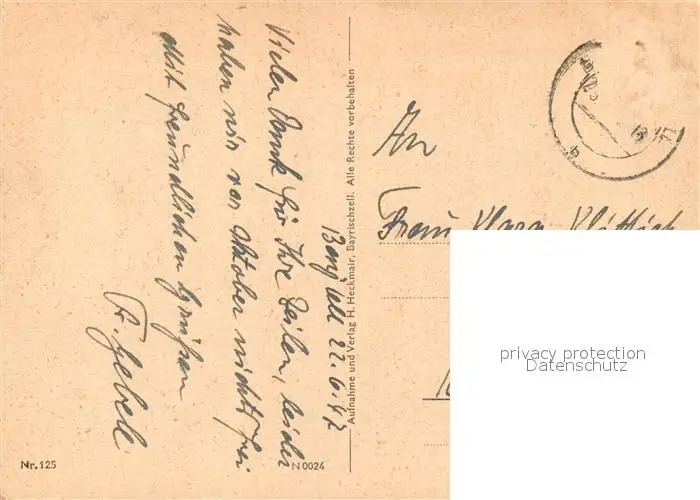 Bayrzell 22.6.47
Vielen Dank für Ihre Zeilen, leider
haben wir vor Oktober nichts frei
Mit freundlichen Grüßen
Fr. Gebele
Aufnahme und Verlag H. Heckmair, Bayrischzell. Alle Rechte vorbehalten
An
Frau Klara
privacy protection
Datenschutz
Nr. 125
N 0024